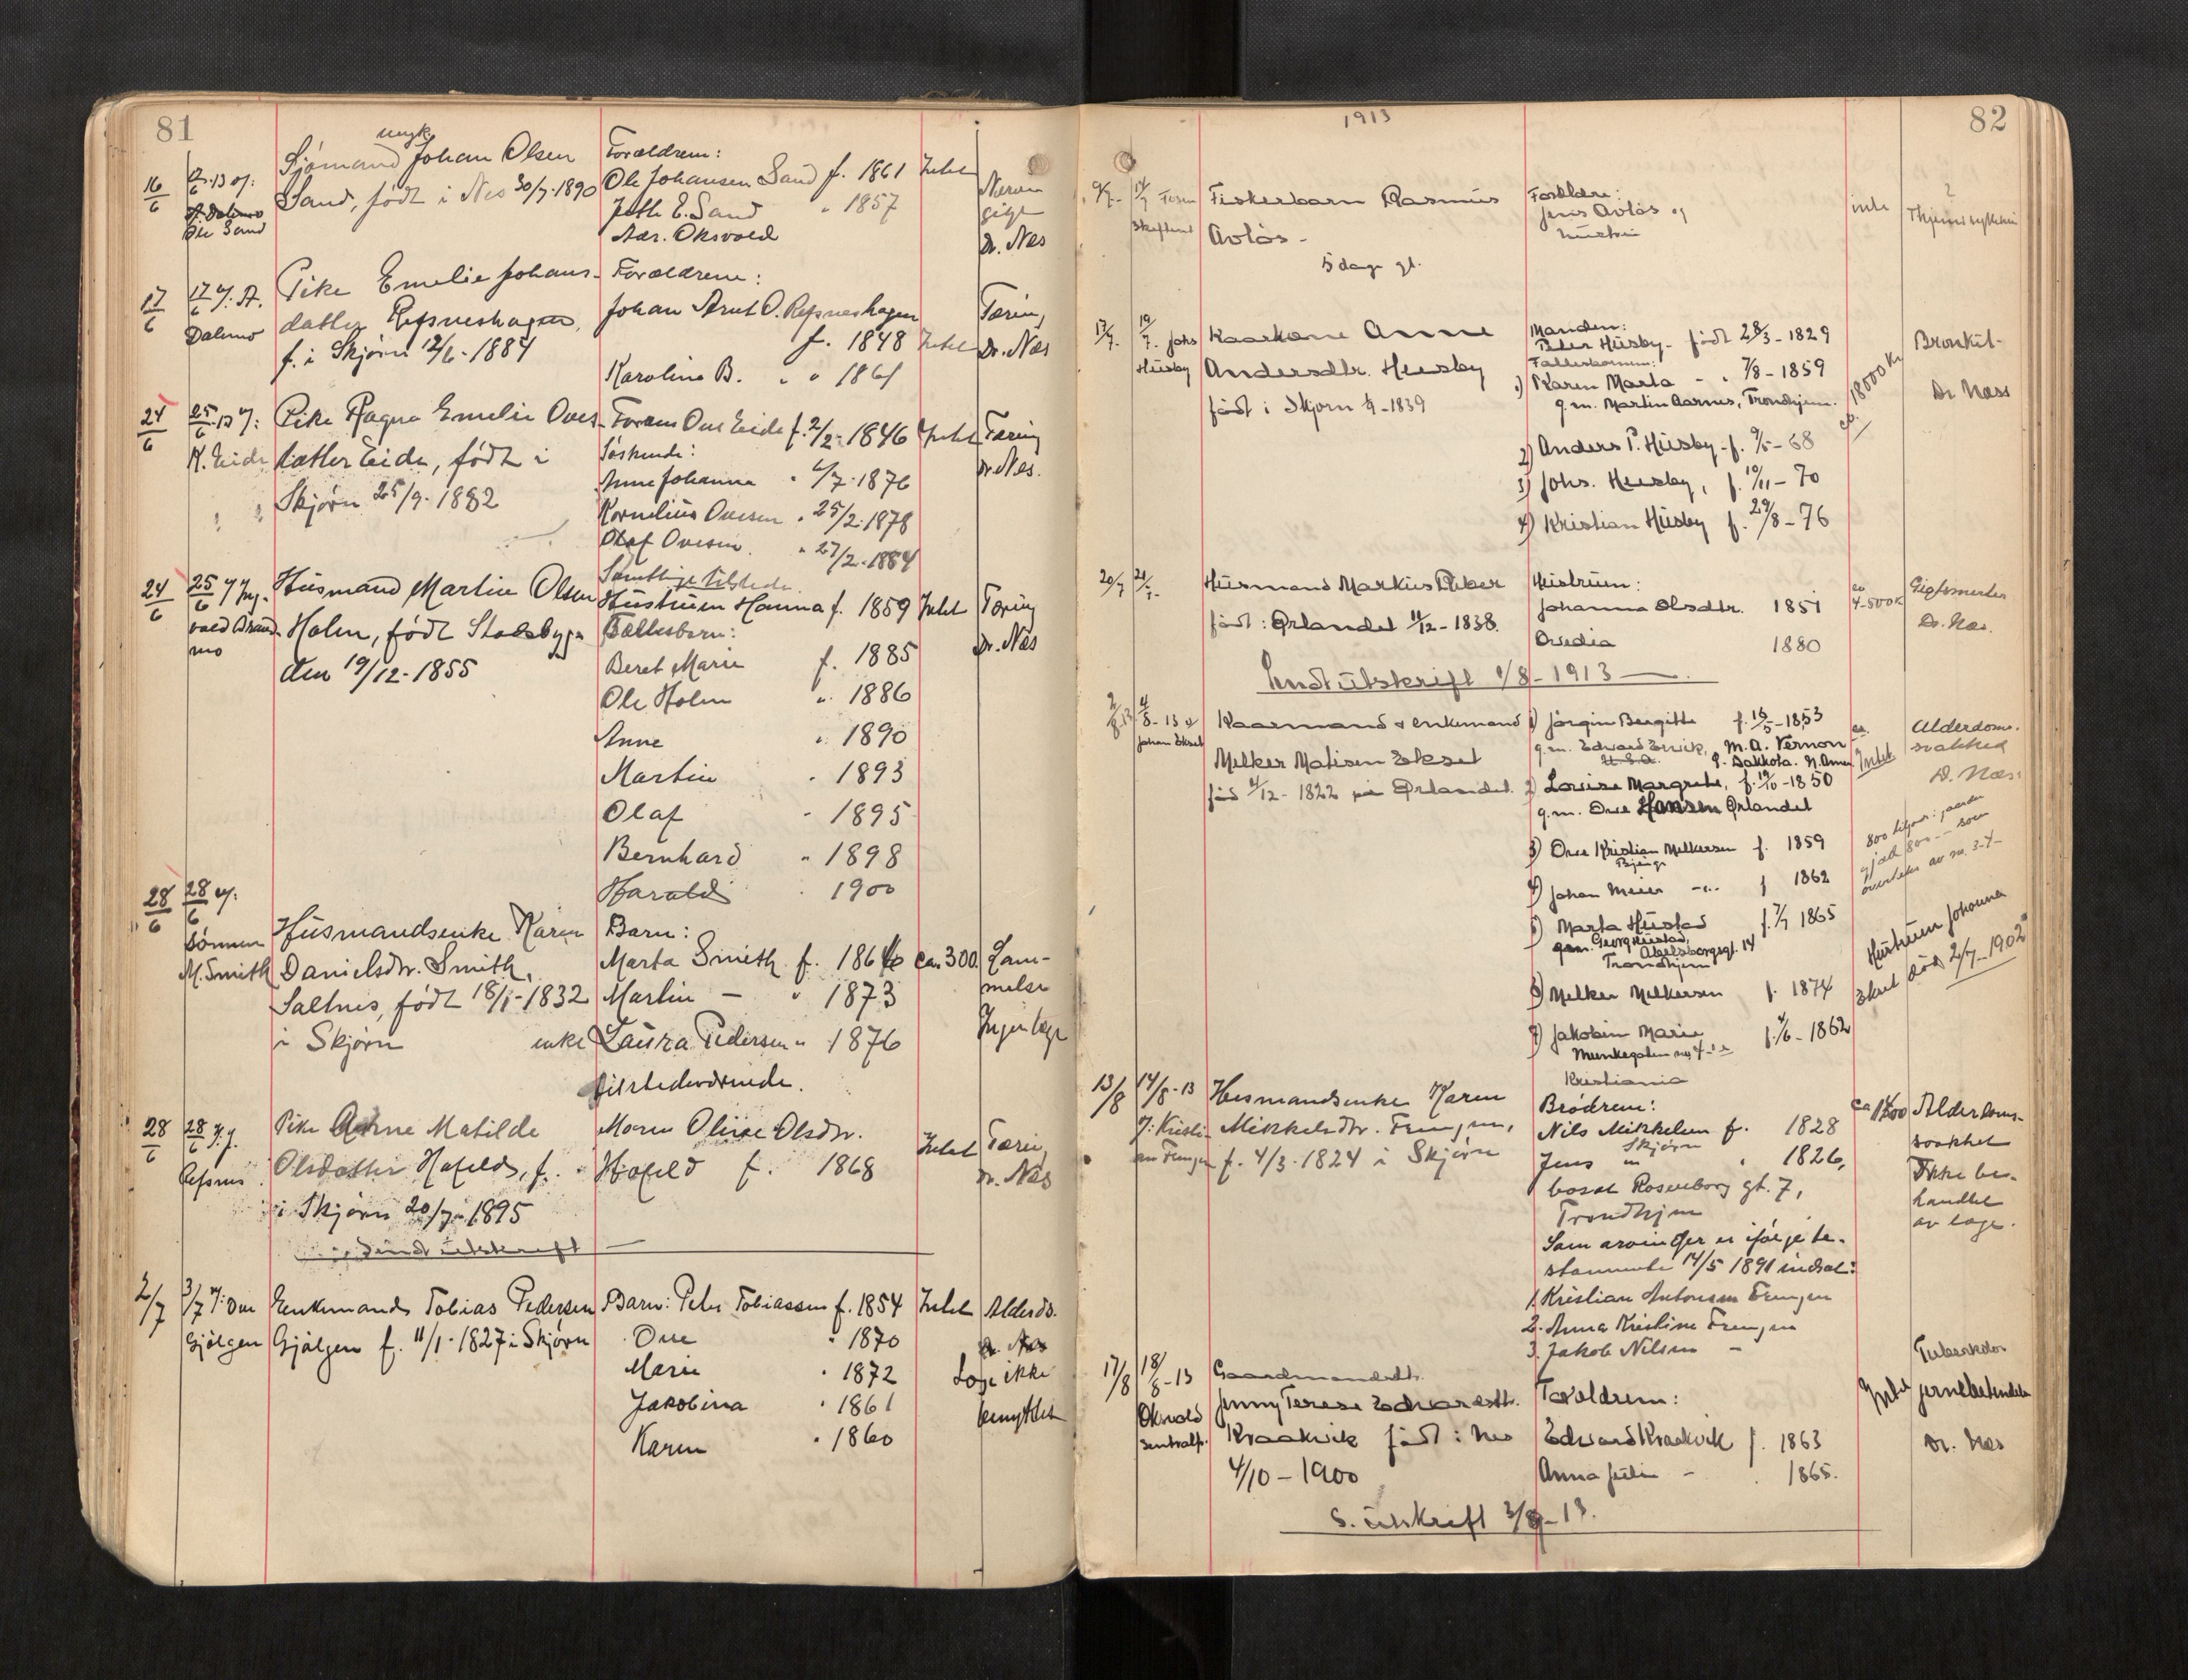 81
16/6
12/6 13 af:
A. Dalmo
Ole Sand
ungk.
Sjømand Johan Olsen
Sand, født i Nes 30/7-1890
Forældrene:
Ole Johansen Sand f. 1861
E. Sand " 1857
Adr. Oksvold
Intet
gigt
Dr. Næs
17/6
17/6 af. A.
Dalmo
Pike Emelie Johans-
datter Refsneshagen,
f. i Skjørn 12/6-1884
Forældrene:
Johan Arnt O. Refsneshagen
f. 1848
Karoline B. " " 1861
Intet
Tæring
Dr. Næs
24/6
25/6 13 af:
K. Eide
Pike Ragna Emelie Oves-
datter Eide, født i
Skjørn 25/9-1882
Faren Ove Eide f. 2/2-1846
Søskende:
Anne Johanna " 6/7-1876
Kornelius Ovesen " 25/2-1878
Olaf Ovesen " 27/2-1884
Samtlige tilstede
Intet
Tæring
Dr. Næs.
24/6
25/6 af Ing-
vald Brand-
mo
Husmand Martin Olsen
Holm, født Stadsbygn
den 19/12-1855
Hustruen Hanna f. 1859
Fællesbarn:
Beret Marie f. 1885
Ole Holm " 1886
Anne " 1890
Martin " 1893
Olaf " 1895
Bernhard " 1898
Harald " 1900
Intet
Tæring
Dr. Næs
28/6
28/6 af:
sønnen
M. Smith
Husmandsenke Karen
Danielsdtr. Smith,
Saltnes, født 18/1-1832
i Skjørn
Barn:
Marta Smith f. 186
Martin — " 1873
enke Laura Pedersen " 1876
tilstedeværende.
ca. 300.
Lam-
melse
Ingen læge
28/6
28/6 J.
Refsnes
Pike Anne Matilde
Olsdatter Hofeld, f.
i Skjørn 20/7-1895
Moren Oline Olsdtr.
Hofeld f. 1868
Intet
Tæring
Dr. Næs
Sendt utskrift
2/7
3/7 af: Ove
Gjølgen
Enkemand Tobias Pedersen
Gjølgen f. 11/1-1827 i Skjørn
Barn: Peter Tobiassen f. 1854
Ove " 1870
Marie " 1872
Jakobina " 1861
Karen " 1860
Intet
Alderds.
Dr. Næs
Læge ikke
benyttet
1913
82
9/7-
14/7
Fiskerbarn Rasmus
Avlös -
5 dage gl.
Forældre:
Jens Avlös og
hustru
inte
?
17/7-
19/7. Johs
Husby
Kaarkone Anne
Andersdtr. Husby
født i Skjørn 4/9-1839
Manden:
Peter Husby- født 28/3-1829
Fællesbarn:
1) Karen Marta - " 7/8-1859
g.m. Martin Aarnes, Trondhjem.
2) Anders P. Husby- f. 9/5-68
3) Johs. Husby, f. 19/11-70
4) Kristian Husby f. 29/8-76
18000 kr
Bronkit-
Dr Næss
20/7
21/7-
Husmand Markus
født: Ørlandet 11/12-1838.
Hustruen:
Johanna Olsdtr. 1851
Ovedia 1880
ca
4-500 k
Gigtsmerter
Dr. Næs.
Sendt utskrift 1/8-1913
2/8 13
4/8-13 v
Johan Ekset
Kaarmand & enkemand
Melker Matisen Ekset
fød 4/12-1822 på Ørlandet.
1) Jørgine Bergitte f. 15/5-1853
g.m. Edvard Errick, M.A. Vernon
U.S.A. S. Dakkota. N. Amer.
2) Lovise Margrete, f. 19/10-1850
g.m. Ove Hansen Ørlandet
3) Ove Kristian Melkersen f. 1859
Bjeings
4) Johan Meier -"- f 1862
5) Marta Hustad f. 7/7 1865
g.m. Georg Hustad,
Abelsborgsgt. 14
Trondhjem
6) Melker Melkersen f. 1874
7) Jakobin Marie f. 4/6-1862
Munkegaten no 4-
Kristiania
ca.
Intet
Alderdoms-
svakhed
D. Næs.
Hustruen Johanna
Ekset død 2/7-1902
13/8
14/8-13
J. Kristi-
an Frengen
Husmandsenke Karen
Mikkelsdtr. Frengen,
f. 4/3-1824 i Skjørn
Brødrene:
Nils Mikkelsen f. 1828
Skjørn
Jens " " 1826,
bosat Rosenborg gt. 7,
Trondhjem
Som arvinger er ifølge te-
stamente 14/5 1891 indsat:
1. Kristian Antonsen Frengen
2. Anna Kristine Frengen
3. Jakob Nilsen —
ca 1200
Alderdoms-
svakhet
Ikke be-
handlet
av læge.
17/8
18/8-13
Oksvold
sentralst.
Gaardmandsdt.
Jenny Terese Edvardsdt.
Kraakvik født i Nes
4/10-1900
Forældrene:
Edvard Kraakvik f. 1863
Anna Julie - " 1865.
Intet
Tuberkulos
jernebetendelse
Dr. Næs
S. utskrift 3/9-13.